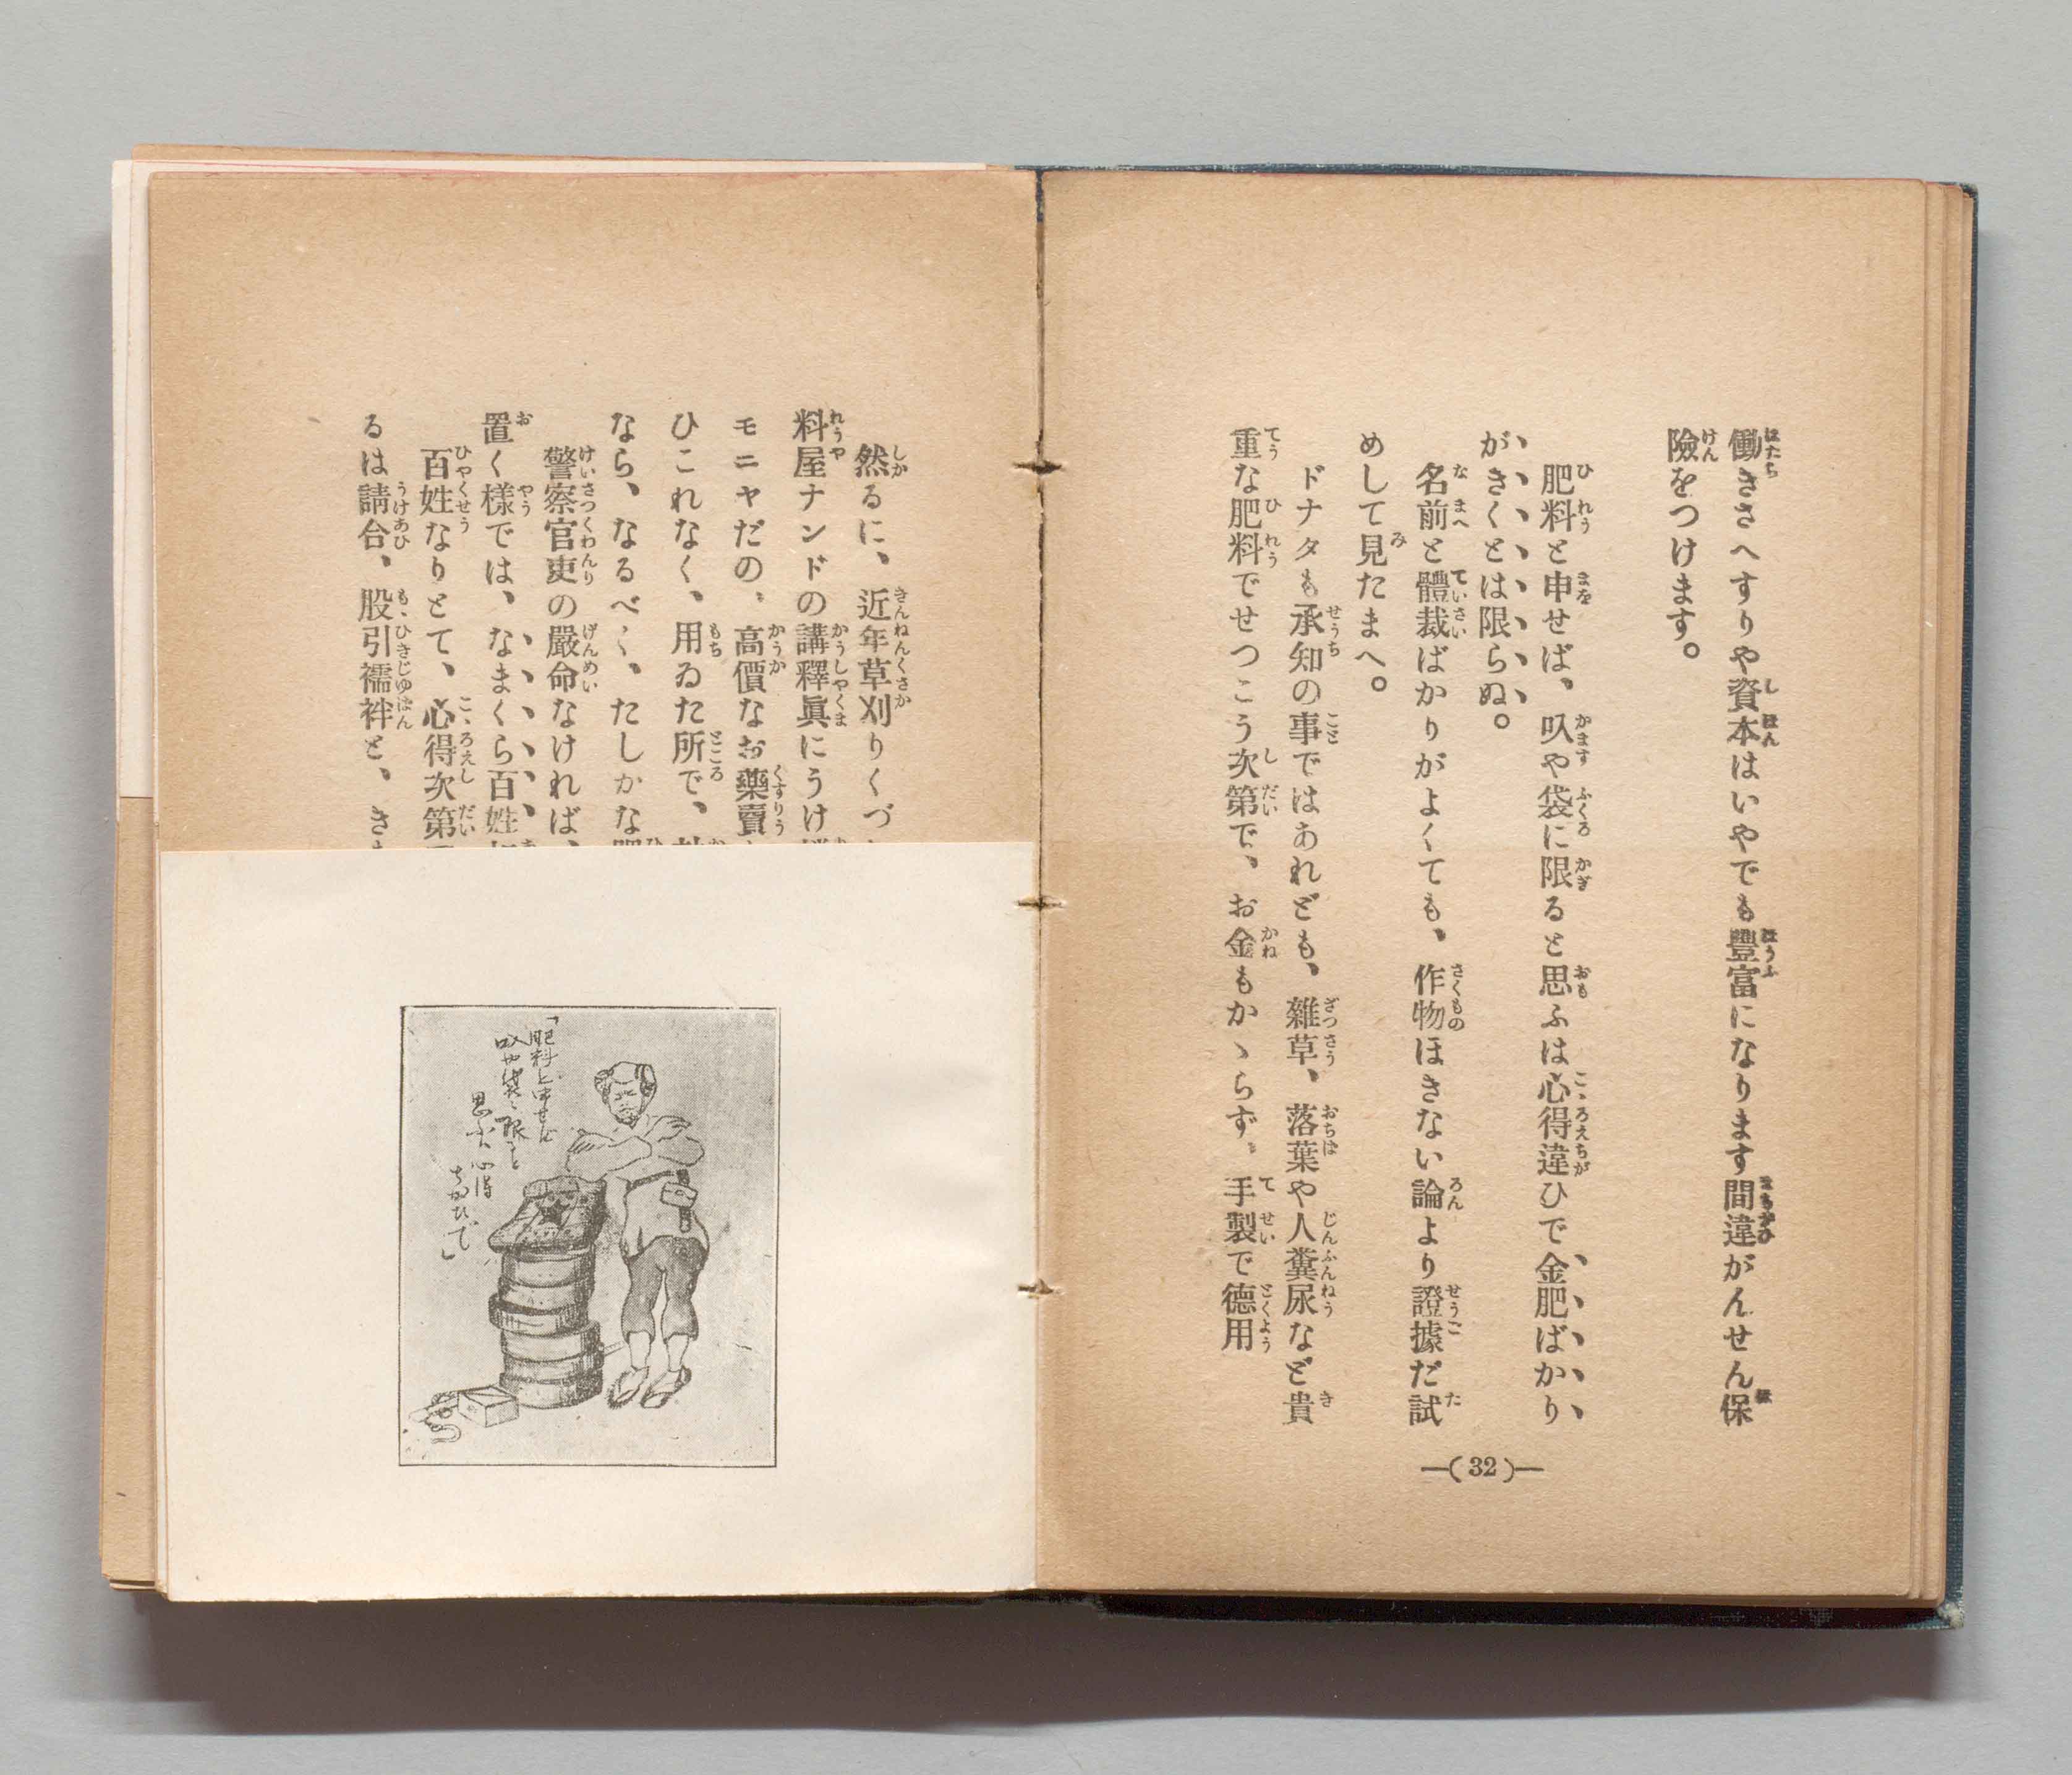 働きさへすりや資本はいやでも豐富になります間違がんせん保
險をつけます。
肥料と申せば、叺や袋に限ると思ふは心得違ひで金肥ばかり
がきくとは限らぬ。
名前と體裁ばかりがよくても、作物ほきない論より證據だ試
めして見たまへ。
ドナタも承知の事ではあれども、雜草、落葉や人糞尿など貴
重な肥料でせつこう次第で、お金もかゝらず、手製で德用
—(32)—
然るに、近年草刈りくづ
料屋ナンドの講釋眞にうけ
モニヤだの、高價なお藥賣
ひこれなく、用ゐた所で、
なら、なるべく、たしかな
警察官吏の嚴命なければ、
置く樣では、なまくら百姓
百姓なりとて、心得次第
るは請合、股引襦袢と、き
「肥料と申せば
叺や袋に限ると
思ふは心得
ちがひで」